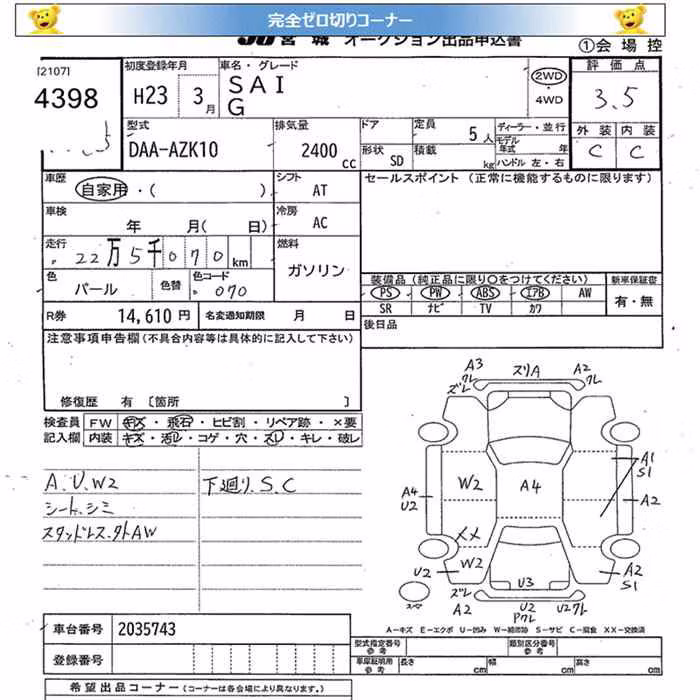 完全ゼロ切りコーナー
JU 宮城 オークション出品申込書
①会場控
[2107]
4398
初度登録年月
H23 3月
車名・グレード
SAI
G
2WD
・4WD
評価点
3.5
外装 内装
C C
型式
DAA-AZK10
排気量
2400cc
ドア
形状 SD
定員 5人
積載 kg
ディーラー・並行
モデル年式 年
ハンドル 左・右
車歴
自家用・( )
シフト AT
セールスポイント (正常に機能するものに限ります)
車検
年 月( 日)
冷房 AC
走行
22万5千070km
燃料
ガソリン
色
パール
色替
色コード
070
装備品(純正品に限り○をつけてください)
新車保証書
PS PW ABS エアB AW
SR ナビ TV カワ
有・無
R券 14,610円
名変通知期限 月 日
後日品
注意事項申告欄(不具合内容等は具体的に記入して下さい)
修復歴 有 〔箇所 〕
検査員
記入欄
FW キズ・飛石・ヒビ割・リペア跡・×要
内装 キズ・汚レ・コゲ・穴・スレ・キレ・破レ
A.U.W2
シート.シミ
スタッドレス.外AW
下廻り.S.C
A3
クレ
ズレ
スリA
A2
クレ
W2
A4
A1
S1
A4
U2
A2
××
W2
U2
U3
A2
S1
ズレ
A2
U2
Pクレ
U2クレ
スペア
A-キズ E-エクボ U-凹み W-補修跡 S-サビ C-腐食 XX-交換済
車台番号 2035743
登録番号
型式指定番号
参考
類別区分番号
参考
車庫証明用
参考
長さ cm 幅 cm 高さ cm
希望出品コーナー(コーナーは各会場により異なります。)